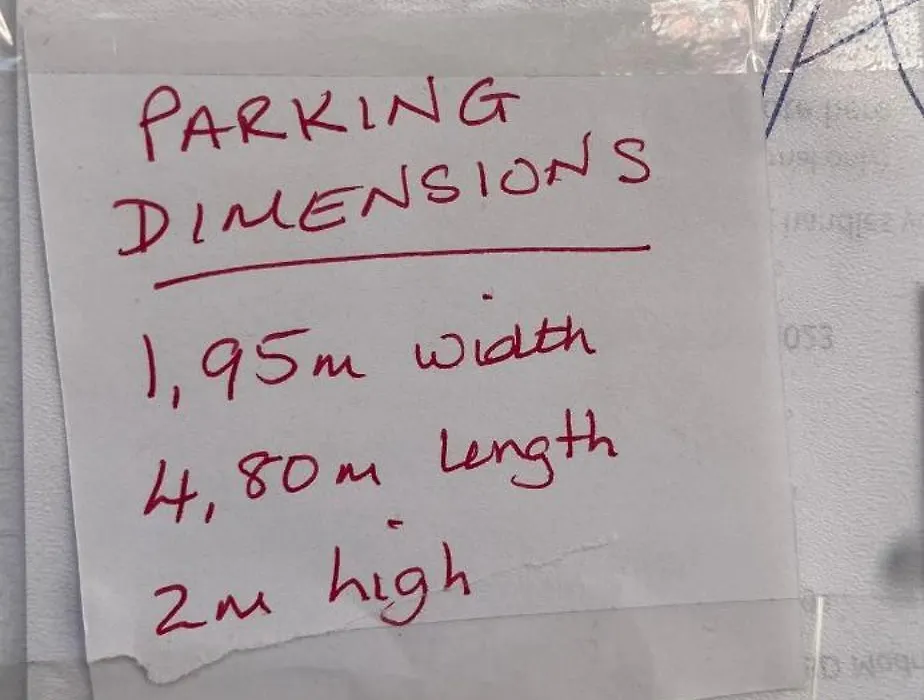 PARKING
DIMENSIONS
1,95m width
4,80m length
2m high